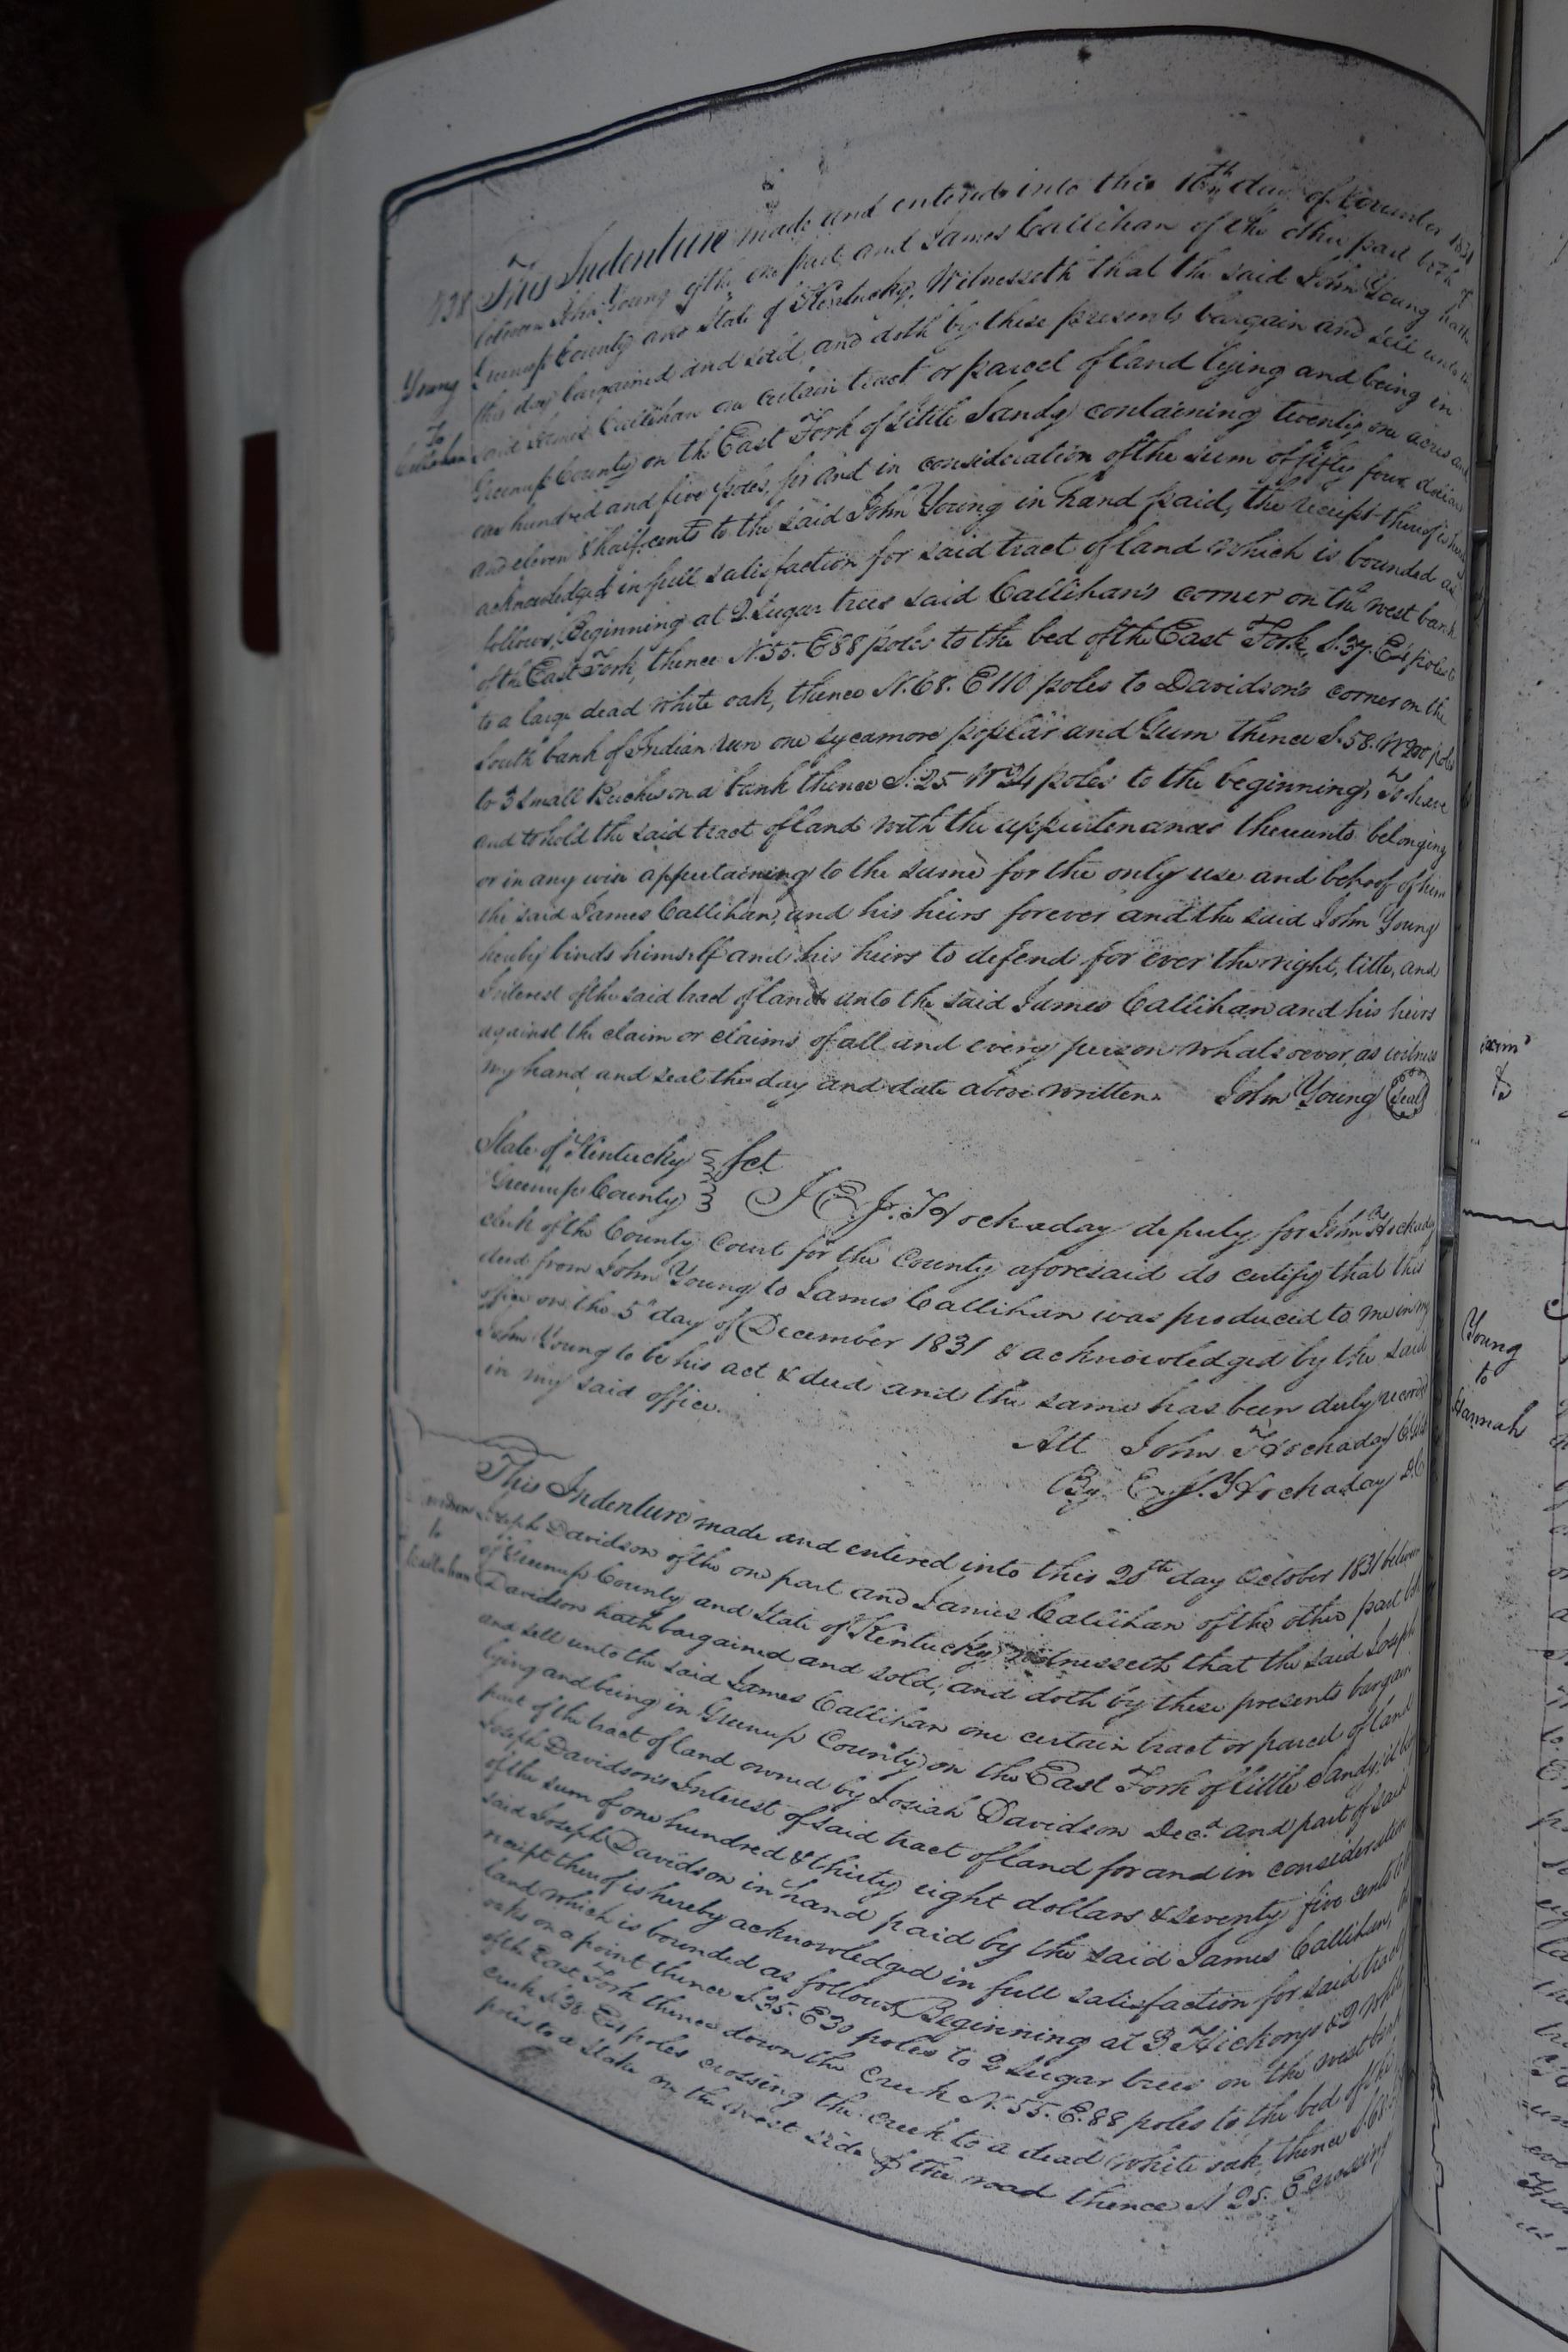 This Indenture made and entered into this 16th day of November 1831
between John Young of the one part, and James Callihan of the other part both of
Greenup County and State of Kentucky, Witnesseth that the said John Young hath
this day bargained and sold, and doth by these presents bargain and sell unto the
said James Callihan one certain tract or parcel of land lying and being in
Greenup County on the East Fork of Little Sandy containing twenty one acres and
one hundred and five poles, for and in consideration of the sum of fifty four dollars
and eleven & half cents to the said John Young in hand paid, the receipt thereof is hereby
acknowledged in full satisfaction for said tract of land which is bounded as
follows, Beginning at 2 Sugar trees said Callihan's corner on the west bank
of the East Fork, thence N.55. E 88 poles to the bed of the East Fork, S.37. E 4 poles to
to a large dead white oak, thence N.68. E 110 poles to Davidson's corner on the
South bank of Indian run one sycamore poplar and Gum thence S.58. W 200 poles
to 3 Small Buches on a bank thence S.25 W 24 poles to the beginning, To have
and to hold the said tract of land with the appurtenances thereunto belonging
or in any wise appertaining to the same for the only use and behoof of him
the said James Callihan, and his heirs forever and the said John Young
hereby binds himself and his heirs to defend for ever the right, title, and
Interest of the said tract of land unto the said James Callihan and his heirs
against the claim or claims of all and every person whatsoever, as witness
my hand and seal the day and date above written. John Young Seal
Young
To
Callihan
State of Kentucky Sct
Greenup County I E. J. Hockaday deputy for John Hockaday
clerk of the County Court for the County aforesaid do certify that this
deed from John Young to James Callihan was produced to me in my
office on the 5th day of December 1831 & acknowledged by the said
John Young to be his act & deed and the same has been duly recorded
in my said office.
Att John Hockaday
By E. J. Hockaday D.C
This Indenture made and entered into this 28th day October 1831 between
Joseph Davidson of the one part and James Callihan of the other part both
of Greenup County and State of Kentucky witnesseth that the said Joseph
Davidson hath bargained and sold, and doth by these presents bargain
and sell unto the said James Callihan one certain tract or parcel of land
lying and being in Greenup County on the East Fork of little Sandy, it being
part of the tract of land owned by Josiah Davidson Decd and part of said
Joseph Davidson's Interest of said tract of land for and in consideration
of the sum of one hundred & thirty eight dollars & seventy five cents to the
said Joseph Davidson in hand paid by the said James Callihan, the
receipt thereof is hereby acknowledged in full satisfaction for said tract
land which is bounded as follows, Beginning at 3 Hickorys & 2 White
oaks on a point thence S.35. E 30 poles to 2 Sugar trees on the west bank
of the East Fork thence down the creek N.55. E. 88 poles to the bed of the
creek S.38. E poles crossing the creek to a dead white oak, thence S.68.
poles to a Stake on the west side of the road thence N 25. E crossing
to
Callihan
Young
to
Hannah